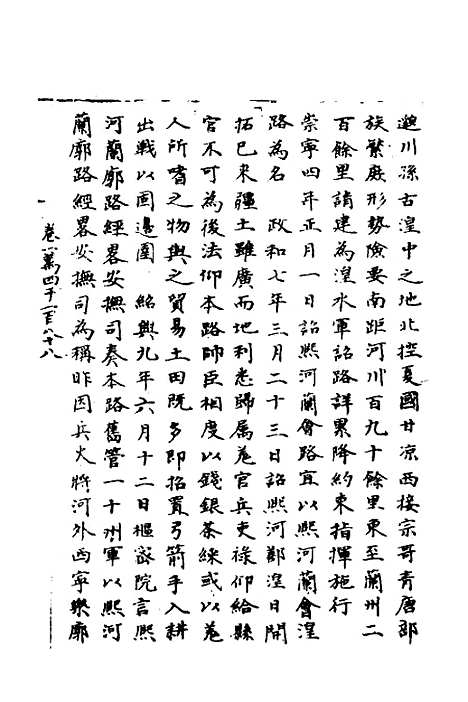 邈川係古湟中之地北控夏國甘凉西接宗哥青唐部
族繁庶形勢險要南距河州百九十餘里東至蘭州二
百餘里請建為湟水軍詔路詳累降約束指揮施行
崇寧四年正月一日詔熙河蘭會路宜以熙河蘭會湟
路為名　政和七年三月二十三日詔熙河鄯湟日開
拓已來疆土雖廣而地利悉歸属羌官兵吏祿仰給縣
官不可為後法仰本路帥臣相度以錢銀茶綵或以羌
人所嗜之物與之貿易土田既多即招置弓箭手入耕
出戰以固邊圉　紹興九年六月十二日樞宻院言熙
河蘭廓路經畧安撫司奏本路舊管一十州軍以熙河
蘭廓路經畧安撫司為稱昨因兵火將河外西寧樂廓
卷一萬四千一百八十八